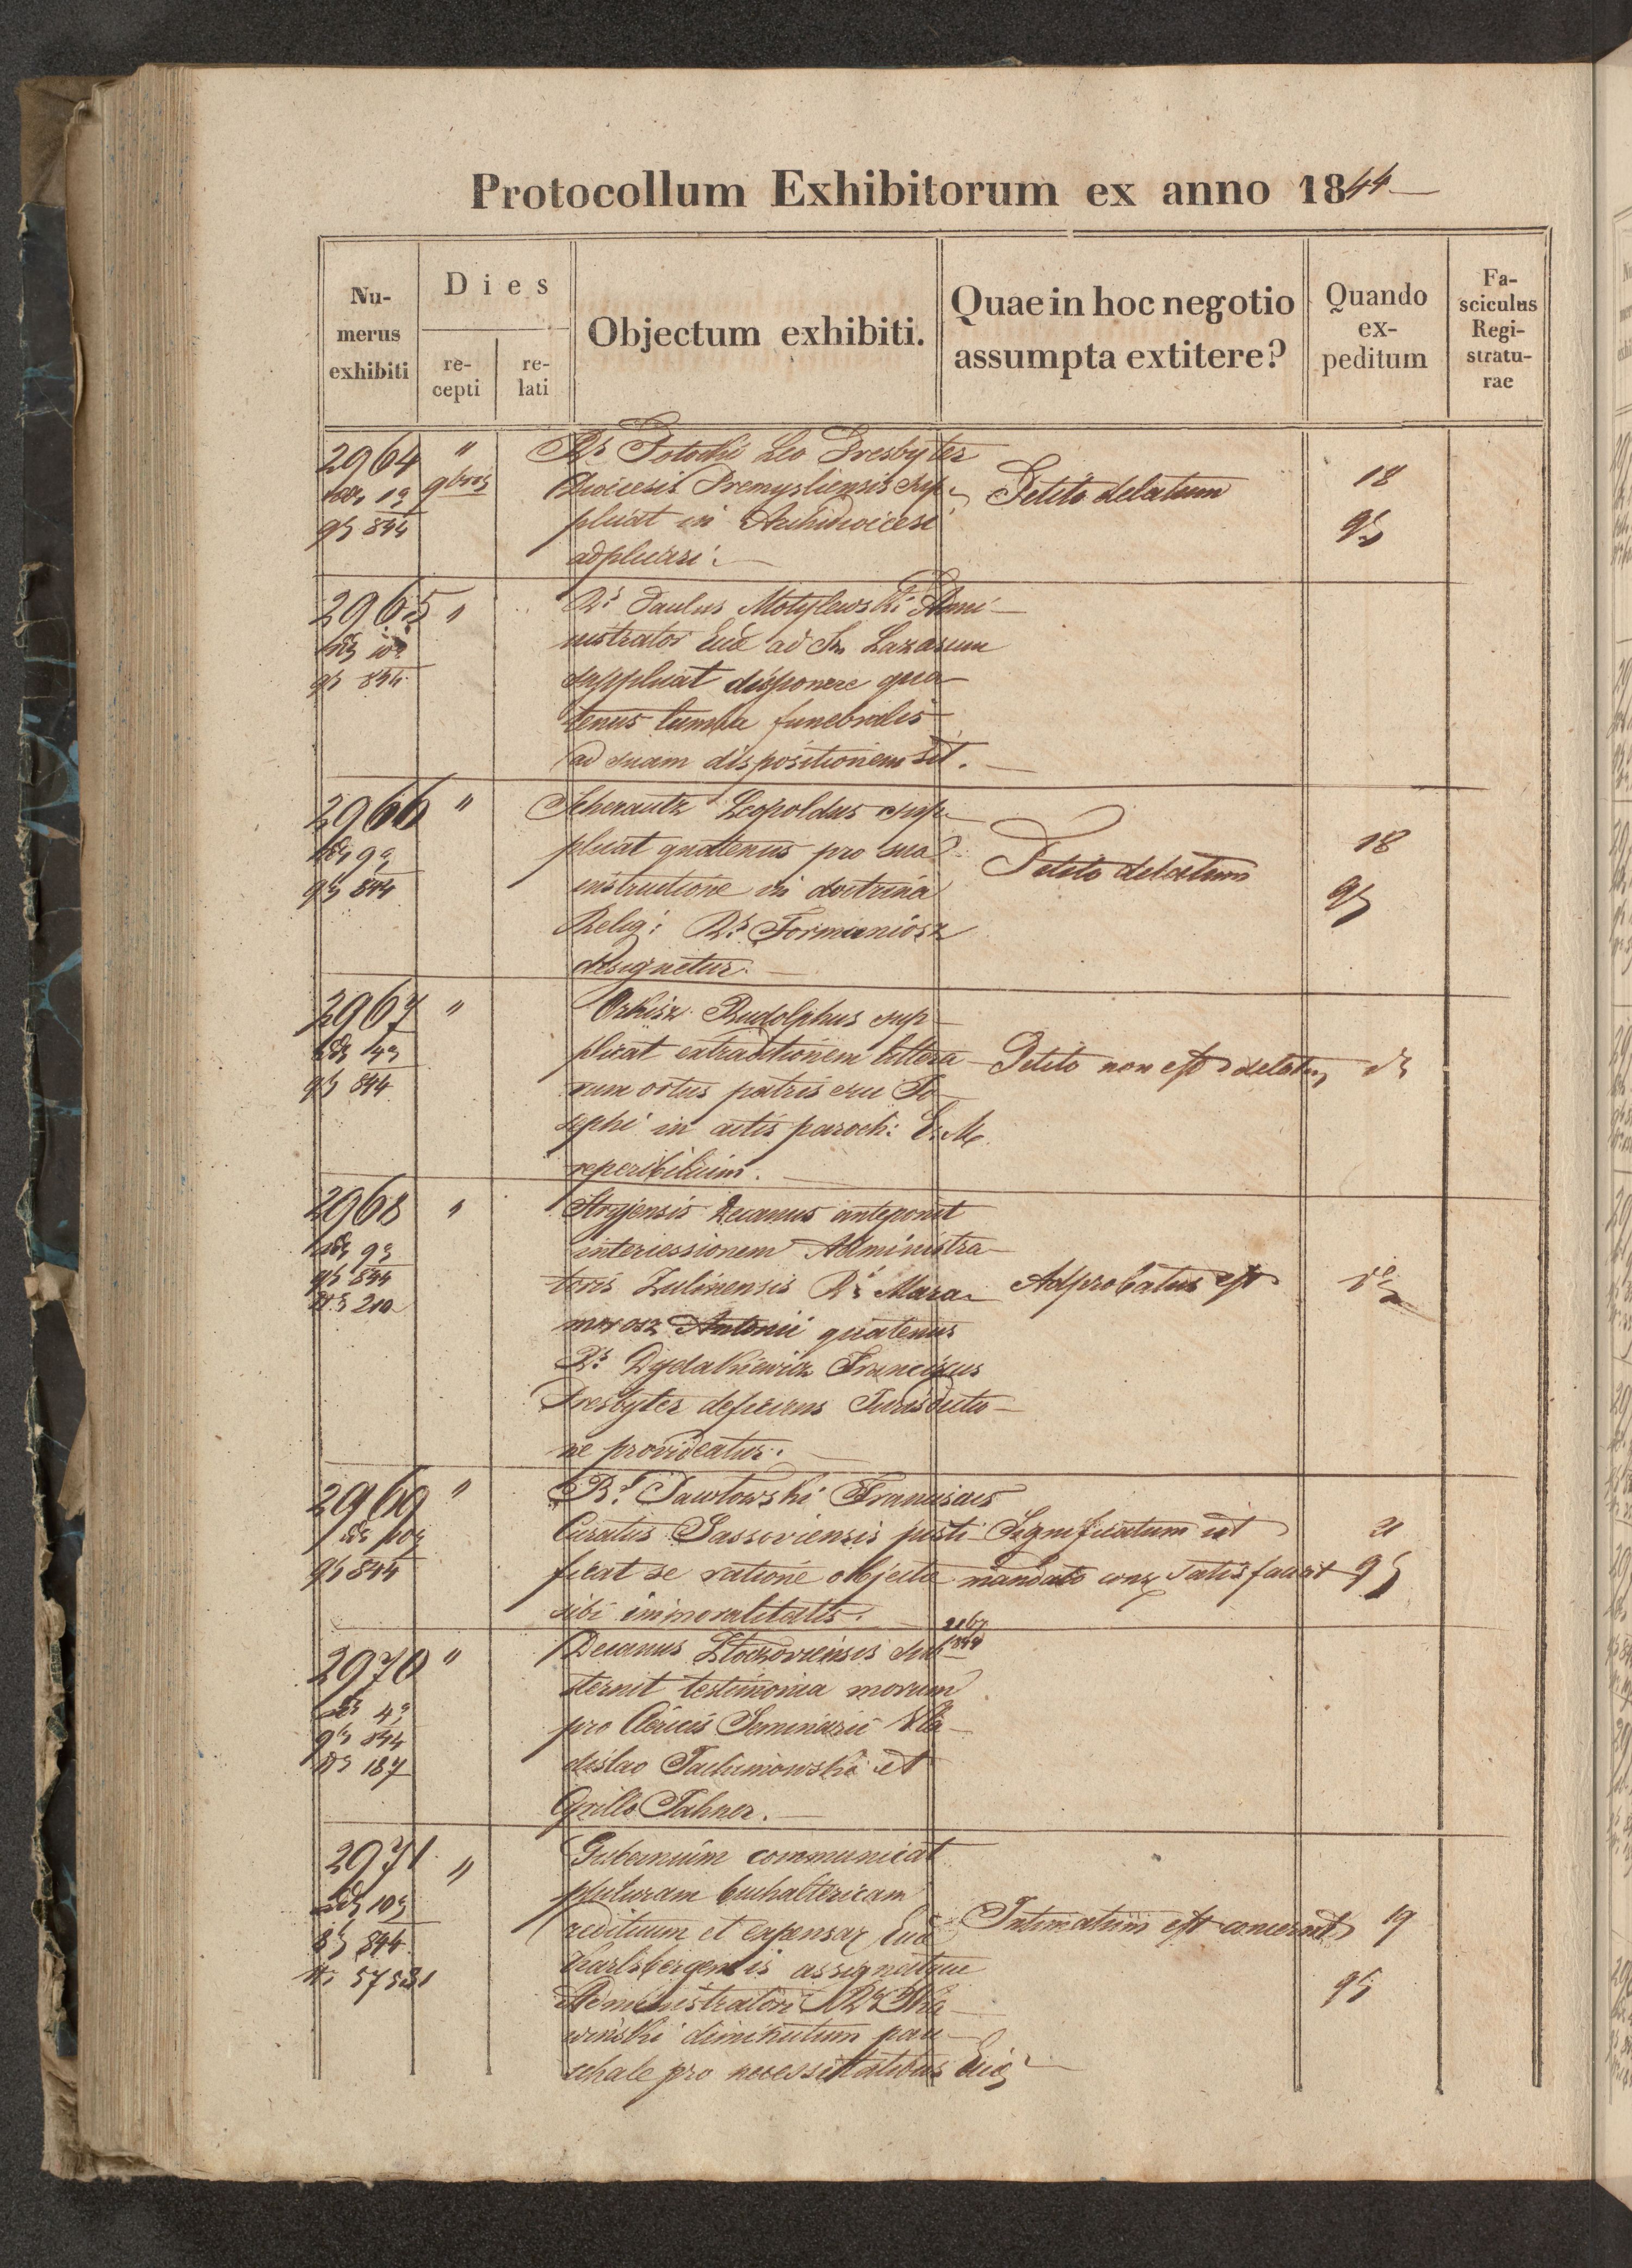 Protocollum Exhibitorum ex anno 1844
Nu-
merus
exhibiti
Dies
re-
cepti
re-
lati
Objectum exhibiti.
Quae in hoc negotio
assumpta extitere?
Quando
ex-
peditum
Fa-
sciculus
Regi-
stratu-
rae
2964 "
9bris
844
Rs Potocki Leo Presbyter
Dioicesis Premysliensis sup-
plicat in Archidioicesi
adplicari.
Petito delatum
18
2965 "
844
Rs Paulus Motylewski Admi-
nistrator Eccl ad S. Lazarum
supplicat disponere qua-
tenus tumba funebralis
ad suam dispositionem sit.
2966 "
844
Scherautz Leopoldus sup-
plicat quatenus pro sua
instructione in doctrina
Relig: Rs Formaniosz
designetur.
Petito delatum
18
2967 "
844
Orkisz Rudolphus sup-
plicat extraditionem littera-
rum ortus patris sui Jo-
sephi in actis paroch: B. M.
reperibilium.
Petito non est delatum
2968 "
844
210
Stryjensis Decanus anteponit
intercessionem Administra-
toris Zulinensis Rs Mara-
morosz Antonii quatenus
Rs Dydakiewicz Franciscus
Presbyter deficiens Jurisdictio-
ne provideatur.
Adprobatus est
2969 "
844
Rs Pawłowski Franciscus
Curatus Sassoviensis justi-
ficat se ratione objecta
sibi immoralitatis.
Significatum ut
mandato satisfaciat
21
2970 "
844
187
Decanus Złoczoviensis sub-
sternit testimonia morum
pro Clericis Seminarii Vla-
dislao Jachimowski et
Cyrillo Jahner.
2971 "
844
57531
Gubernium communicat
picturam buchaltericam
redituum et expensar Eccl
Karlsbergensis assignatque
Administratori
winski diminutum pau-
schale pro necessitatibus Eccl
Intimatum est concernet
19